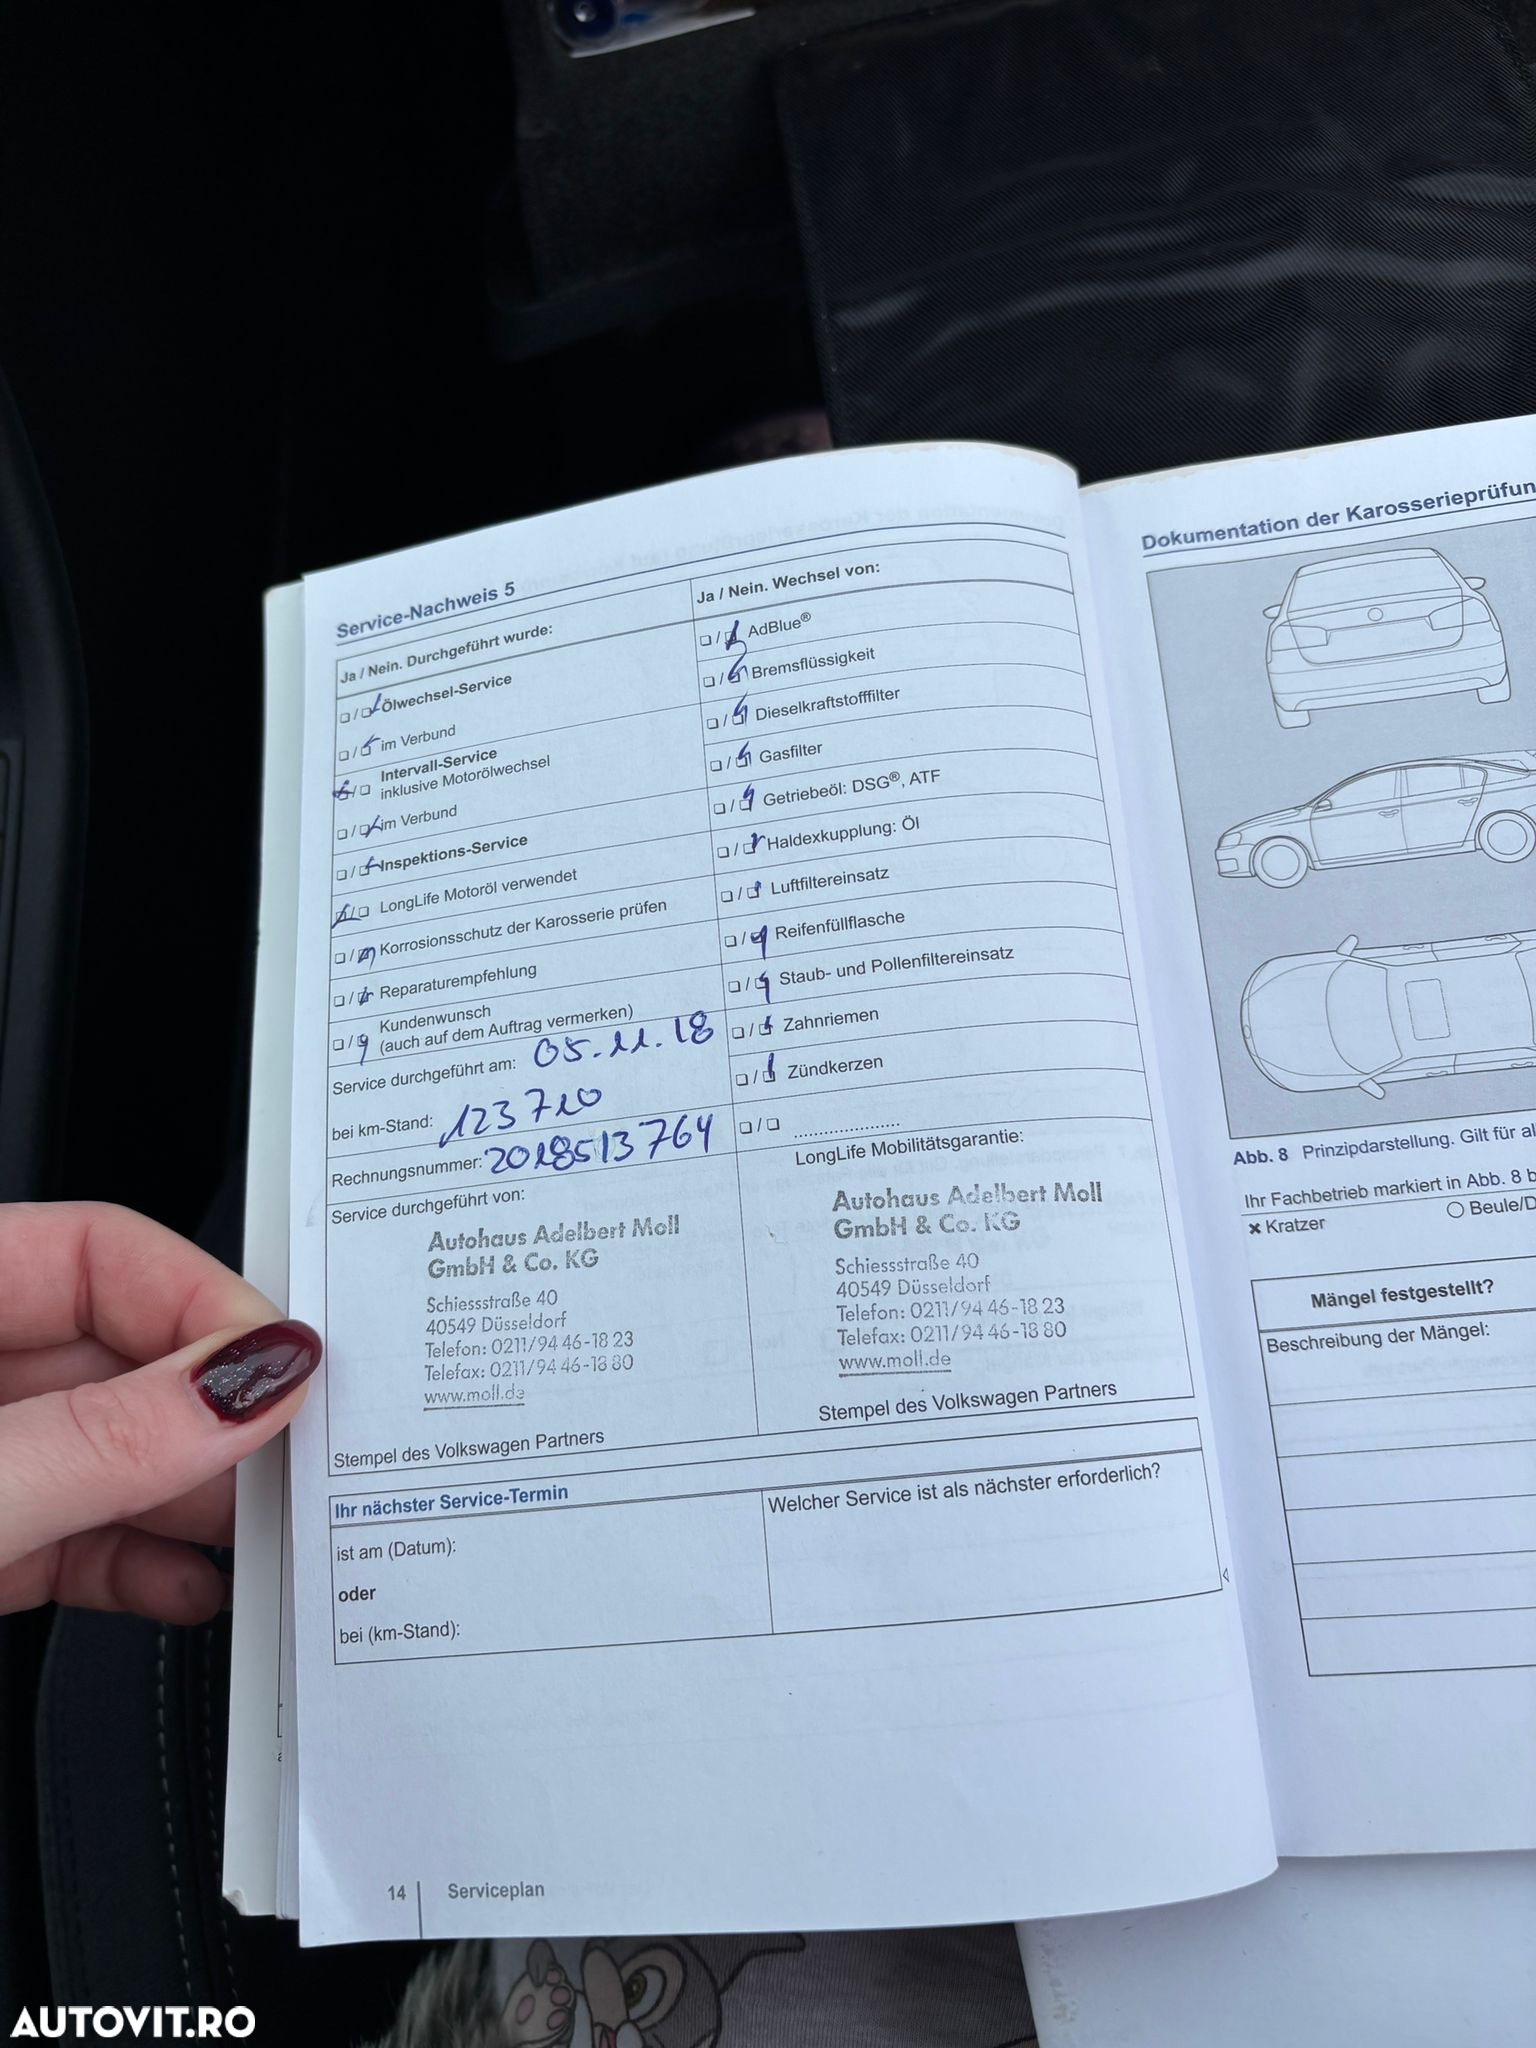 Service-Nachweis 5
Ja / Nein. Durchgeführt wurde:
Ölwechsel-Service
im Verbund
Intervall-Service
inklusive Motorölwechsel
im Verbund
Inspektions-Service
LongLife Motoröl verwendet
Korrosionsschutz der Karosserie prüfen
Reparaturempfehlung
Kundenwunsch
(auch auf dem Auftrag vermerken)
Service durchgeführt am: 05.11.18
bei km-Stand: 123710
Rechnungsnummer: 2018513764
Service durchgeführt von:
Autohaus Adelbert Moll
GmbH & Co. KG
Schiessstraße 40
40549 Düsseldorf
Telefon: 0211/94 46-18 23
Telefax: 0211/94 46-18 80
www.moll.de
Stempel des Volkswagen Partners
Ja / Nein. Wechsel von:
AdBlue®
Bremsflüssigkeit
Dieselkraftstofffilter
Gasfilter
Getriebeöl: DSG®, ATF
Haldexkupplung: Öl
Luftfiltereinsatz
Reifenfüllflasche
Staub- und Pollenfiltereinsatz
Zahnriemen
Zündkerzen
LongLife Mobilitätsgarantie:
Autohaus Adelbert Moll
GmbH & Co. KG
Schiessstraße 40
40549 Düsseldorf
Telefon: 0211/94 46-18 23
Telefax: 0211/94 46-18 80
www.moll.de
Stempel des Volkswagen Partners
Ihr nächster Service-Termin
ist am (Datum):
oder
bei (km-Stand):
Welcher Service ist als nächster erforderlich?
14 Serviceplan
Dokumentation der Karosserieprüfun
Abb. 8 Prinzipdarstellung. Gilt für al
Ihr Fachbetrieb markiert in Abb. 8 b
× Kratzer
Beule/D
Mängel festgestellt?
Beschreibung der Mängel:
AUTOVIT.RO